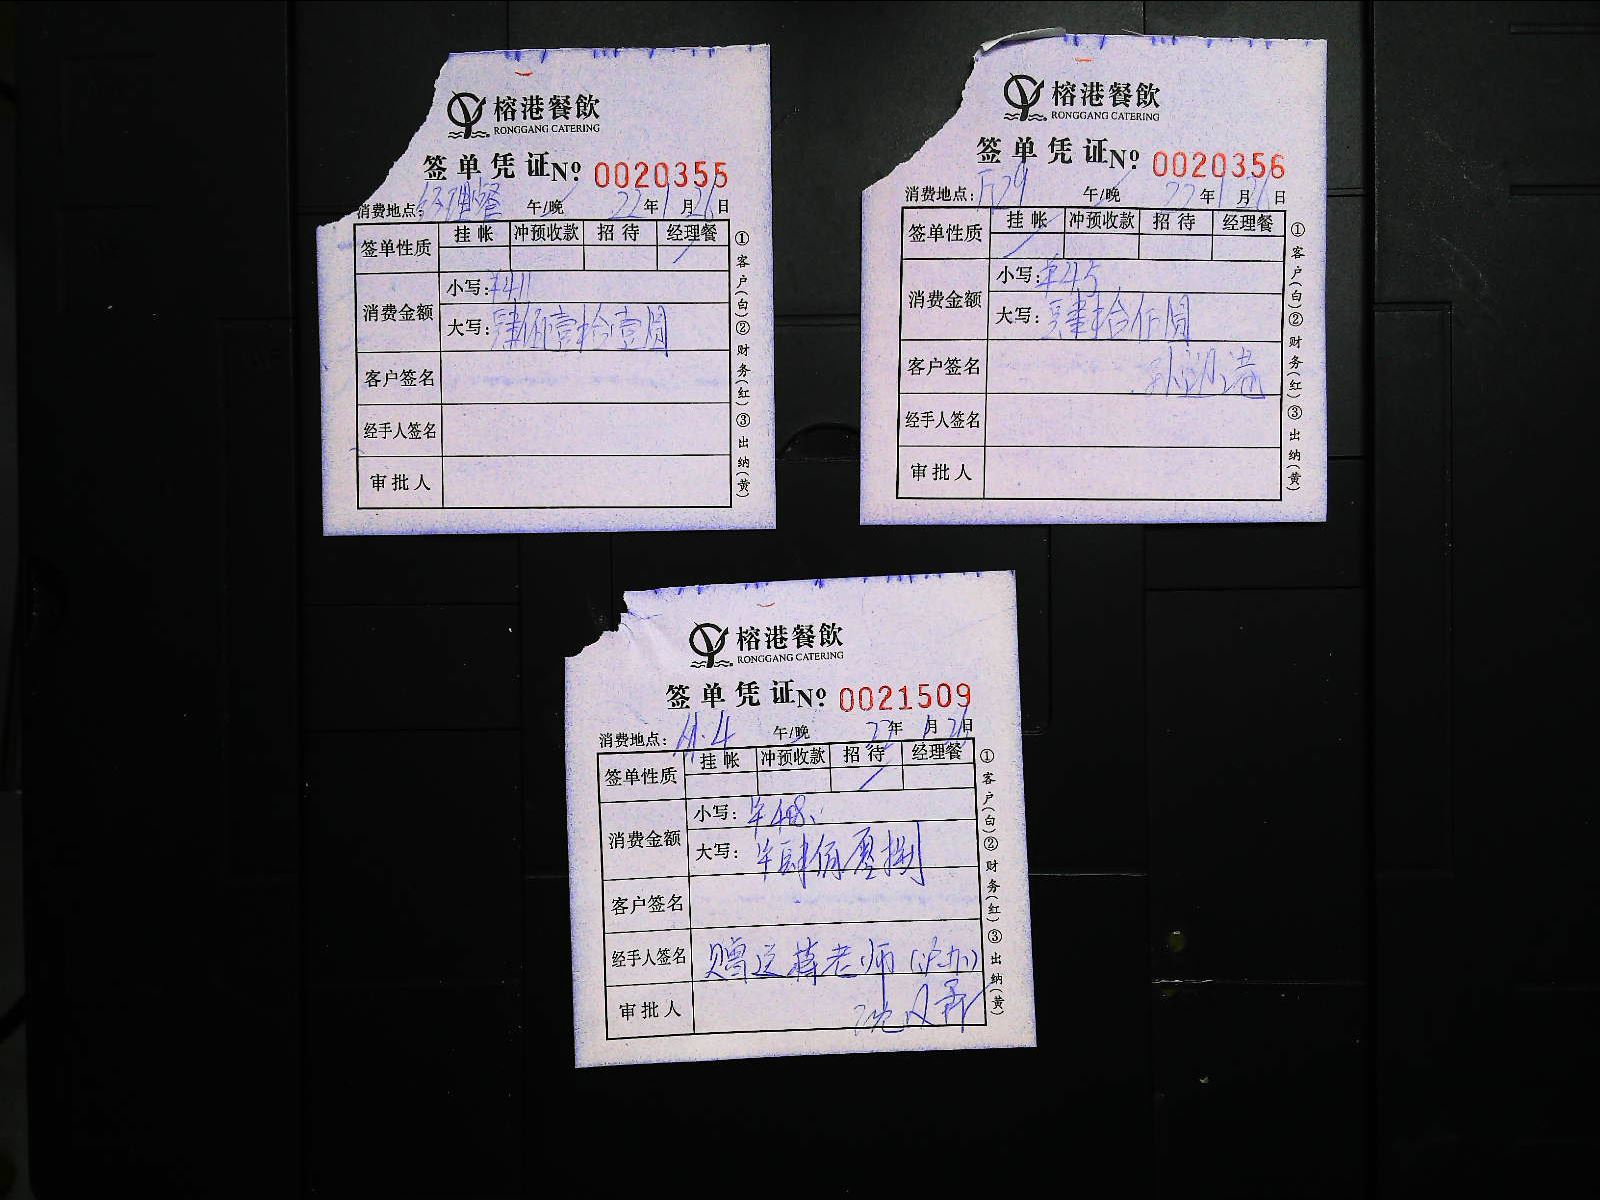 榕港餐飲
RONGGANG CATERING
签单凭证№ 0020355
消费地点:经理餐 午/晚 22年1月26日
签单性质 挂帐 冲预收款 招待 经理餐
消费金额 小写:¥411
大写:肆佰壹拾壹圆
客户签名
经手人签名
审批人
①客户(白)②财务(红)③出纳(黄)
榕港餐飲
RONGGANG CATERING
签单凭证№ 0020356
消费地点: 午/晚 22年1月26日
签单性质 挂帐 冲预收款 招待 经理餐
消费金额 小写:¥45
大写:肆拾伍圆
客户签名
经手人签名
审批人
①客户(白)②财务(红)③出纳(黄)
榕港餐飲
RONGGANG CATERING
签单凭证№ 0021509
消费地点: 午/晚 22年1月26日
签单性质 挂帐 冲预收款 招待 经理餐
消费金额 小写:¥408
大写:¥肆佰零捌
客户签名
经手人签名 赠送蒋老师(沪办)
审批人
①客户(白)②财务(红)③出纳(黄)